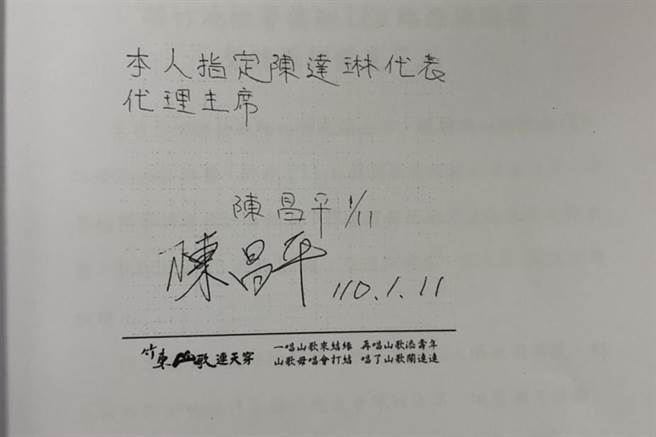 本人指定陳達琳代表
代理主席
陳昌平 1/11
陳昌平 110.1.11
竹東山歌連天穿
一唱山歌來結緣 再唱山歌添青年
山歌毋唱會打結 唱了山歌鬧連連